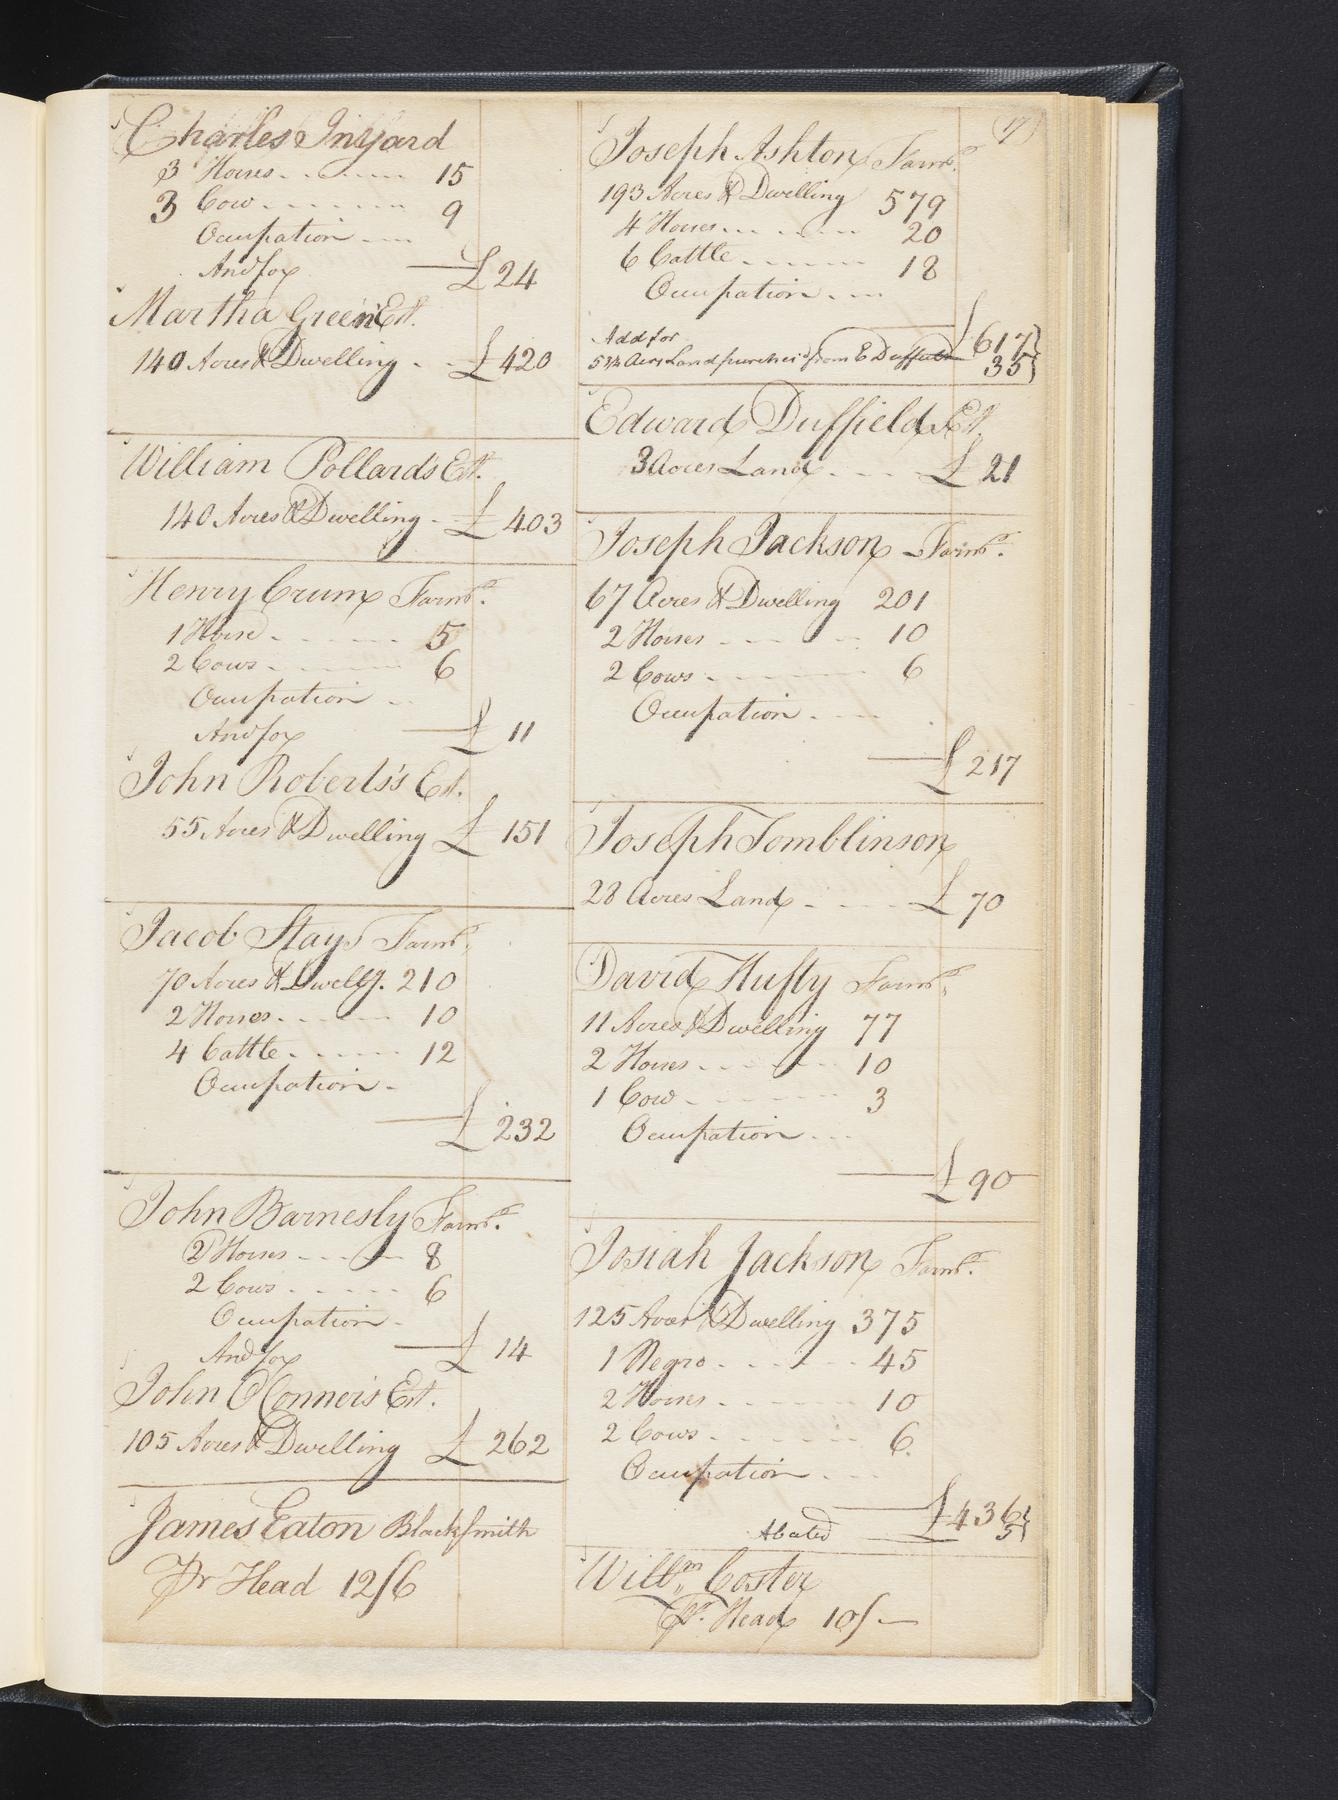 Charles Inyard
3 Horses 15
3 Cow 9
Occupation
And for £24
Martha Green Est.
140 Acres & Dwelling £420
William Pollard's Est.
140 Acres & Dwelling £403
Henry Crum Farmr.
1 Horse 5
2 Cows 6
Occupation
And for £11
John Roberts's Est.
55 Acres & Dwelling £151
Jacob Stays Farmr.
70 Acres & Dwellg. 210
2 Horses 10
4 Cattle 12
Occupation
£232
John Barnesly Farmr.
2 Horses 8
2 Cows 6
Occupation
And for £14
John O'Connor's Est.
105 Acres & Dwelling £262
James Eaton Blacksmith
Pr Head 12/6
Joseph Ashton Farmr.
193 Acres & Dwelling 579
4 Horses 20
6 Cattle 18
Occupation
£617
Add for
5¾ Acrs Land purchas'd from E Duffield 35
Edward Duffield Est.
3 Acres Land £21
Joseph Jackson Farmr.
67 Acres & Dwelling 201
2 Horses 10
2 Cows 6
Occupation
£217
Joseph Tomblinson
28 Acres Land £70
David Hufty Farmr.
11 Acres & Dwelling 77
2 Horses 10
1 Cow 3
Occupation
£90
Josiah Jackson Farmr.
125 Acres & Dwelling 375
1 Negro 45
2 Horses 10
2 Cows 6
Occupation
£436
Abated 5
Willm. Coster
Pr. Head 10/—